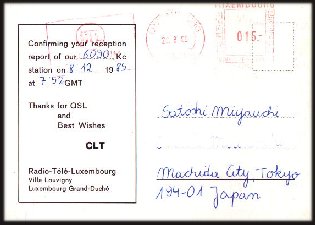 LUXEMBOURG
015-
Confirming your reception
report of our 6090 Kc
station on 8 12 1985
at 7 52 GMT
Thanks for QSL
and
Best Wishes
CLT
Radio-Télé-Luxembourg
Villa Louvigny
Luxembourg Grand-Duché
Satoshi Miyauchi
Machida City Tokyo
194-01 Japan